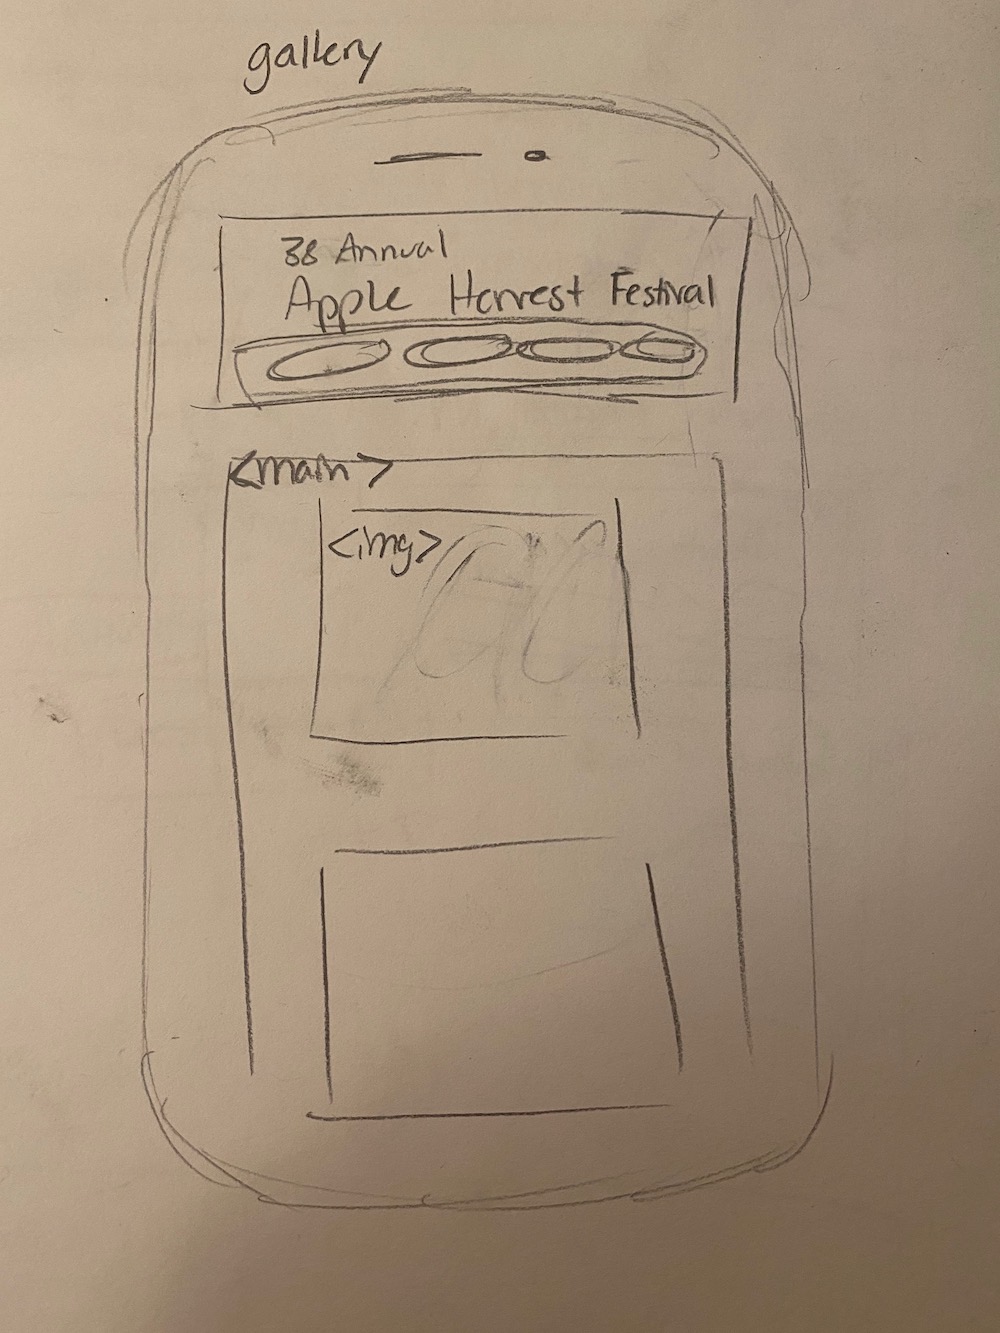 gallery
38 Annual
Apple Harvest Festival
<main>
<img>